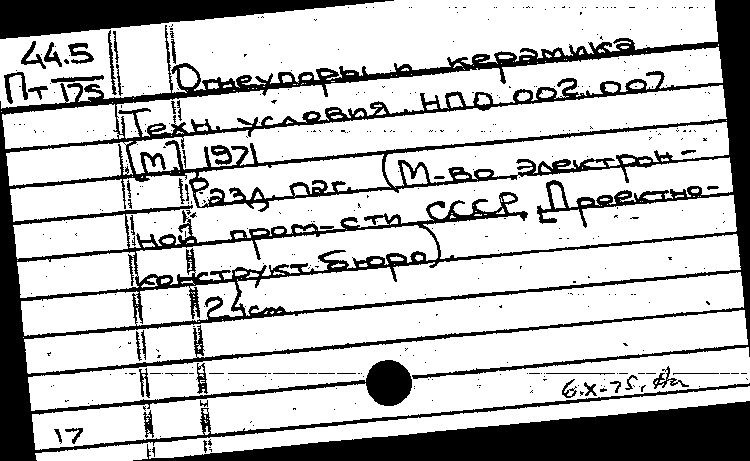 44.5
Пт 175
Огнеупоры и керамика
Техн. условия. НПО 002.007.
[М] 1971.
Разд. паг. (М-во электрон-
ной пром-сти СССР. Проектно-
конструкт. бюро).
24см.
6.X-75.
17